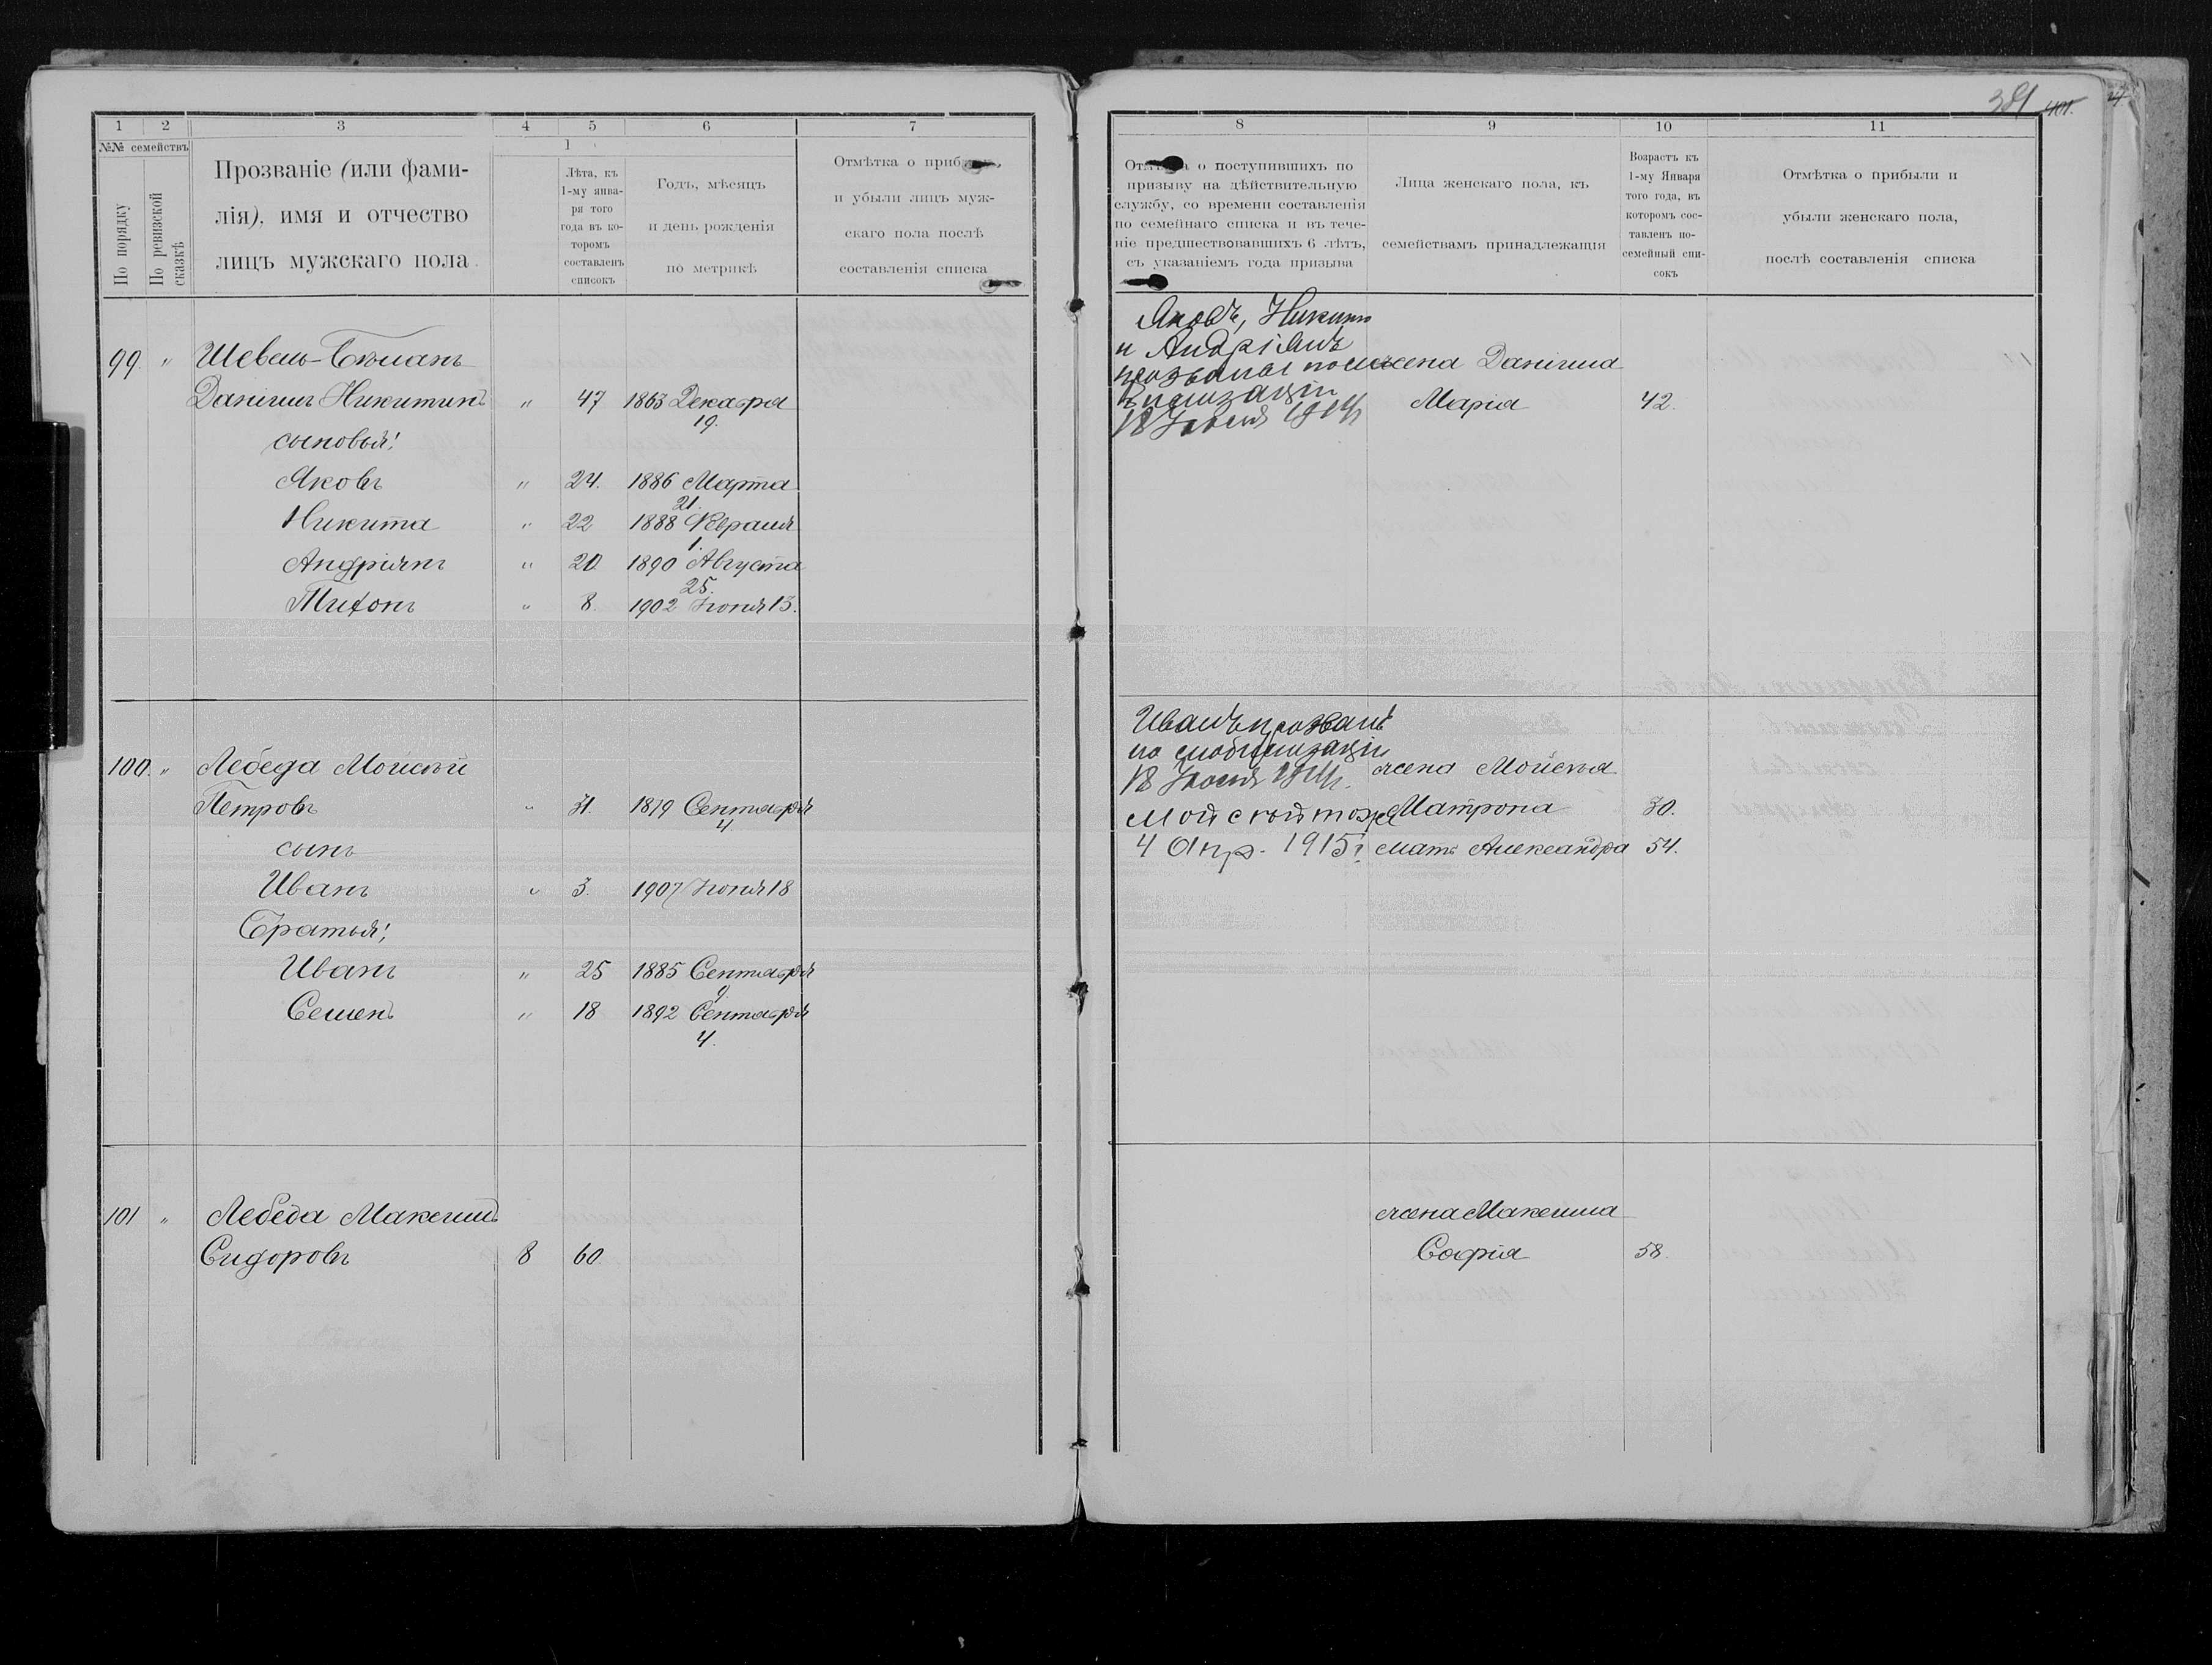 381 401.
1 2 3 4 5 6 7
№№ семействъ
По порядку
По ревизской сказкѣ
Прозваніе (или фами-
лія), имя и отчество
лицъ мужскаго пола
1
Лѣта, къ
1-му янва-
ря того
года въ ко-
торомъ
составленъ
списокъ
Годъ, мѣсяцъ
и день рожденія
по метрикѣ
Отмѣтка о прибыли
и убыли лицъ муж-
скаго пола послѣ
составленія списка
99. " Шевель-Бѣланъ
Даніилъ Никитинъ " 47 1863 Декабря
19.
сыновья:
Яковъ " 24. 1886 Марта
21.
Никита " 22 1888 Февраля
1.
Андріянъ " 20. 1890 Августа
25.
Тихонъ " 8. 1902 Іюня 13.
100. " Лебеда Моисей
Петровъ " 31. 1879 Сентября
4
сынъ
Иванъ " 3. 1907 Іюня 18
Братья:
Иванъ " 25 1885 Сентября
9.
Семенъ " 18 1892 Сентября
4.
101 " Лебеда Максимъ
Сидоровъ 8 60
8 9 10 11
Отмѣтка о поступившихъ по
призыву на дѣйствительную
службу, со времени составленія
по семейнаго списка и въ тече-
ніе предшествовавшихъ 6 лѣтъ,
съ указаніемъ года призыва
Лица женскаго пола, къ
семействамъ принадлежащія
Возрастъ къ
1-му Января
того года, въ
которомъ сос-
тавленъ по-
семейный спи-
сокъ
Отмѣтка о прибыли и
убыли женскаго пола,
послѣ составленія списка
Яковъ, Никита
и Андріанъ
призваны по мо
билизаціи
18 Іюля 1914 г.
жена Даніила
Марія 42.
Иванъ призванъ
по мобилизаціи
18 Іюля 1914 г.
Мойсѣй тоже
4 Апр. 1915 г.
жена Мойсея
Матрона 30.
мать Александра 54.
жена Максима
Софія 58.